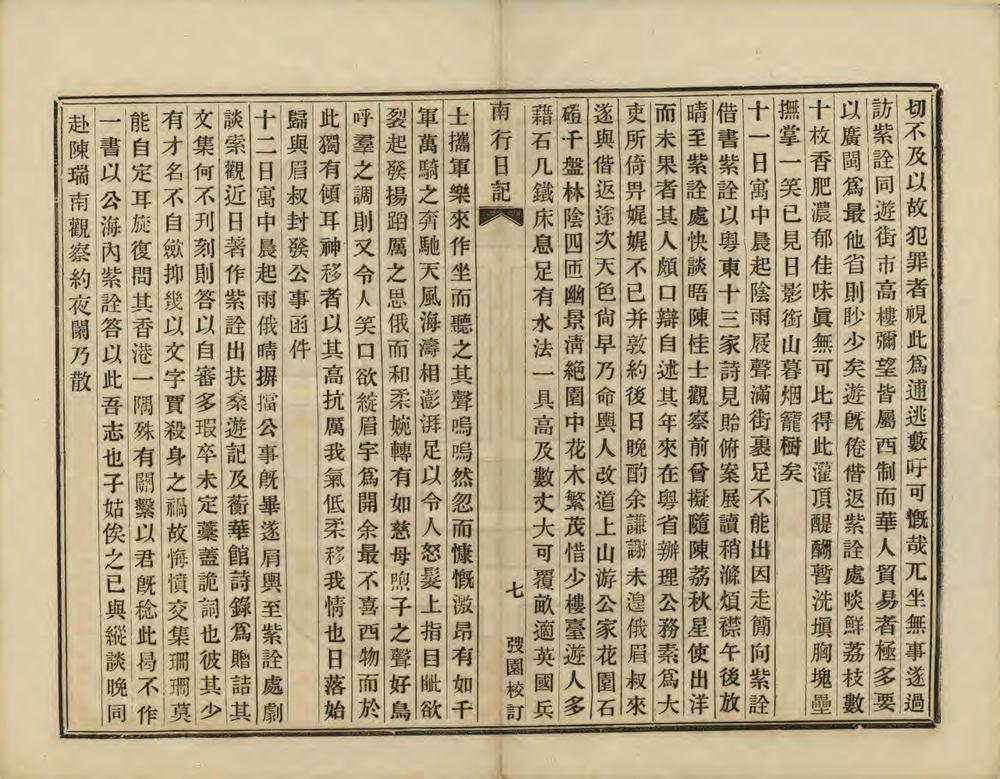 切不及以故犯罪者視此爲逋逃藪吁可慨哉兀坐無事遂過
訪紫詮同遊街市高樓彌望皆屬西制而華人貿易者極多要
以廣閩爲最他省則眇少矣遊旣倦偕返紫詮處啖鮮荔枝數
十枚香肥濃郁佳味眞無可比得此灌頂醍醐暫洗塡胸塊壘
撫掌一笑已見日影銜山暮烟籠樹矣
十一日寓中晨起陰雨屐聲滿街裹足不能出因走簡向紫詮
借書紫詮以粵東十三家詩見貽俯案展讀稍滌煩襟午後放
晴至紫詮處快談晤陳桂士觀察前曾擬隨陳荔秋星使出洋
而未果者其人頗口辯自述其年來在粵省辦理公務素爲大
吏所倚畀娓娓不已并敦約後日晚酌余謙謝未遑俄眉叔來
遂與偕返途次天色尙早乃命輿人改道上山游公家花園石
磴千盤林陰四匝幽景淸絕園中花木繁茂惜少樓臺遊人多
藉石几鐵床息足有水法一具高及數丈大可覆畝適英國兵
南行日記
七
弢園校訂
士攜軍樂來作坐而聽之其聲嗚嗚然忽而慷慨激昂有如千
軍萬騎之奔馳天風海濤相澎湃足以令人怒髮上指目眦欲
裂起發揚蹈厲之思俄而和柔婉轉有如慈母喣子之聲好鳥
呼羣之調則又令人笑口欲綻眉宇爲開余最不喜西物而於
此獨有傾耳神移者以其高抗厲我氣低柔移我情也日落始
歸與眉叔封發公事函件
十二日寓中晨起雨俄晴摒擋公事旣畢遂肩輿至紫詮處劇
談索觀近日著作紫詮出扶桑遊記及蘅華館詩錄爲贈詰其
文集何不刊刻則答以自審多瑕卒未定藁蓋詭詞也彼其少
有才名不自斂抑幾以文字賈殺身之禍故悔憤交集珊珊莫
能自定耳旋復問其香港一隅殊有關繫以君旣稔此曷不作
一書以公海內紫詮答以此吾志也子姑俟之已與縱談晚同
赴陳瑞南觀察約夜闌乃散